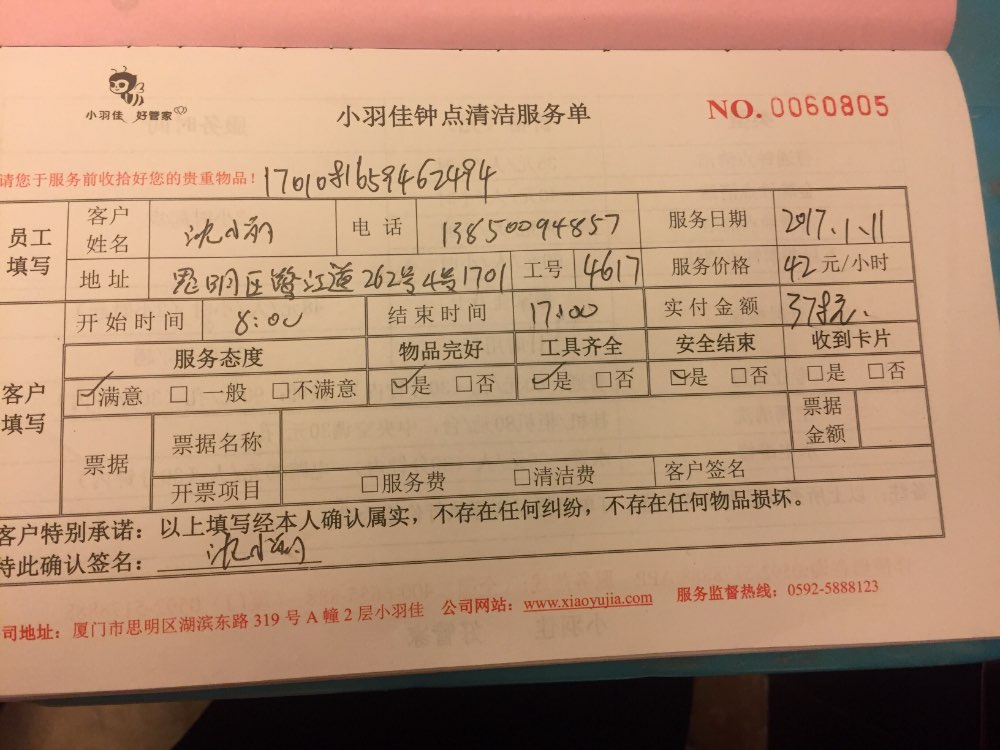 小羽佳 好管家
小羽佳钟点清洁服务单
NO. 0060805
请您于服务前收拾好您的贵重物品！ 1701081659462494
员工填写 客户姓名 沈小 电话 13850094857 服务日期 2017.1.11
地址 思明区鹭江道262号4号1701 工号 4617 服务价格 42元/小时
客户填写 开始时间 8:00 结束时间 17:00 实付金额 378元
服务态度 物品完好 工具齐全 安全结束 收到卡片
☑满意 □一般 □不满意 ☑是 □否 ☑是 □否 ☑是 □否 □是 □否
票据 票据名称 票据金额
开票项目 □服务费 □清洁费 客户签名
客户特别承诺：以上填写经本人确认属实，不存在任何纠纷，不存在任何物品损坏。
特此确认签名： 沈小
公司地址：厦门市思明区湖滨东路 319 号 A 幢 2 层小羽佳 公司网站：www.xiaoyujia.com 服务监督热线：0592-5888123